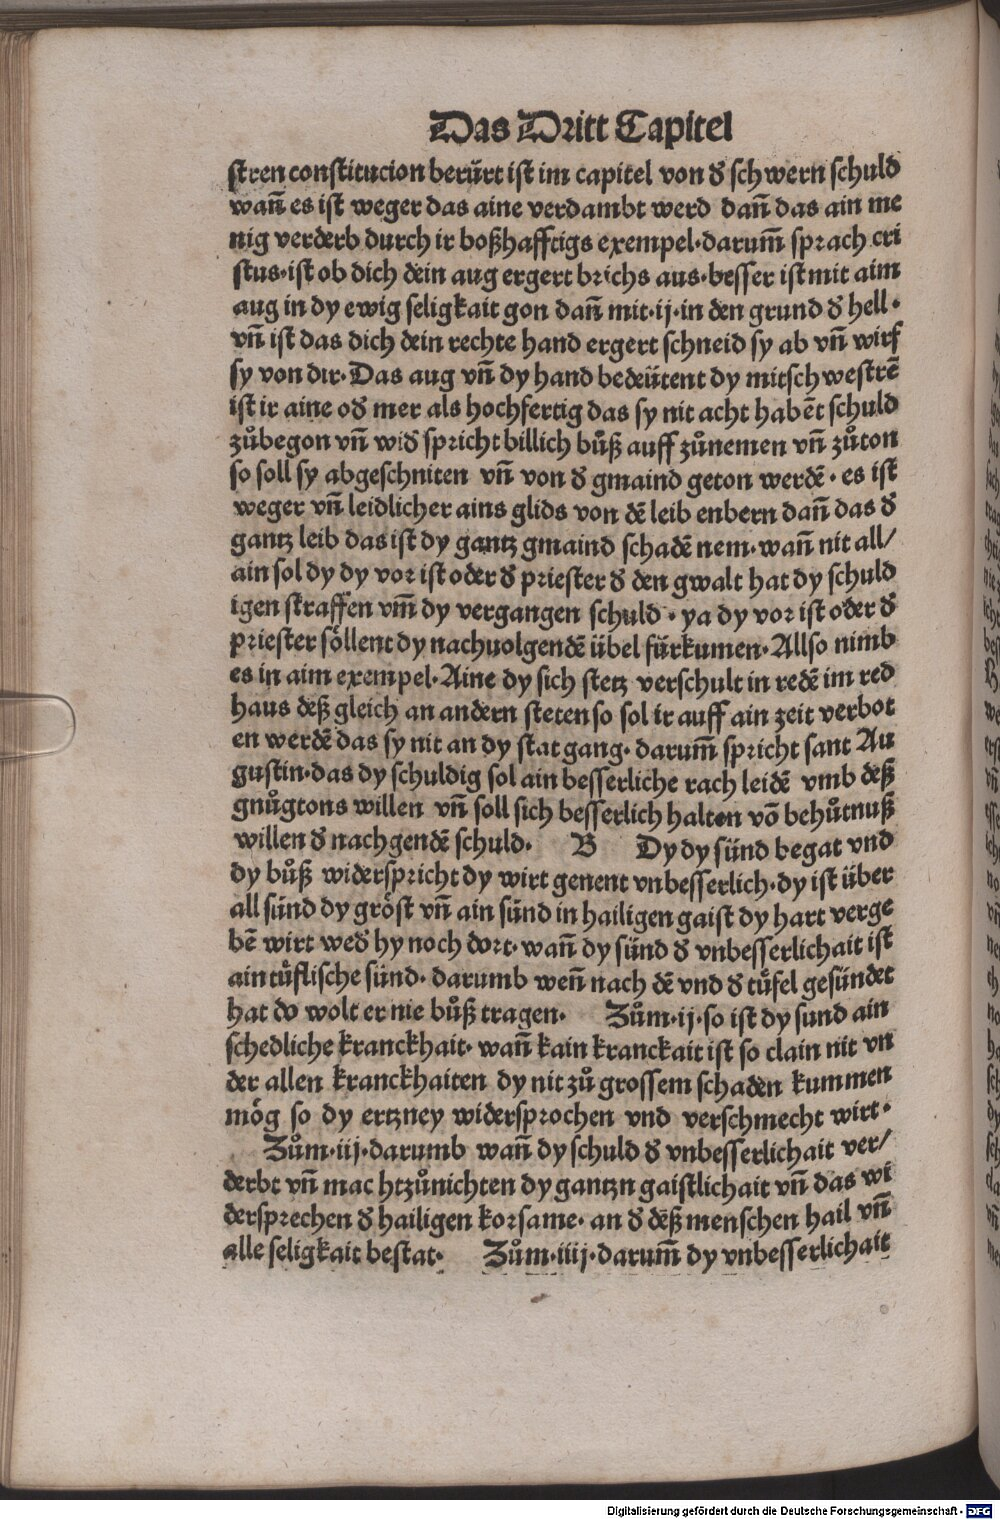 Das Dritt Capitel
stren constitucion berürt ist im capitel von d̕ schwern schuld
wañ es ist weger das aine verdambt werd dañ das ain me
nig verderb durch ir boßhafftigs exempel·darum̄ sprach cri
stus·ist ob dich dein aug ergert brichs aus·besser ist mit aim
aug in dy ewig seligkait gon dañ mit·ij·in den grund d̕ hell·
vñ ist das dich dein rechte hand ergert schneid sy ab vñ wirf
sy von dir·Das aug vñ dy hand bedeütent dy mitschwestrē
ist ir aine od̕ mer als hochfertig das sy nit acht habēt schuld
zůbegon vñ wid̕ spricht billich bůß auff zůnemen vñ zůton
so soll sy abgeschniten vñ von d̕ gmaind geton werdē· es ist
weger vñ leidlicher ains glids von dē leib enbern dañ das d̕
gantz leib das ist dy gantz gmaind schadē nem·wañ nit all/
ain sol dy dy vor ist oder d̕ priester d̕ den gwalt hat dy schuld
igen straffen vm̄ dy vergangen schuld· ya dy vor ist oder d̕
priester söllent dy nachuolgendē übel fürkumen·Allso nimb
es in aim exempel·Aine dy sich stetz verschult in redē im red
haus deß gleich an andern steten so sol ir auff ain zeit verbot
en werdē das sy nit an dy stat gang· darum̄ spricht sant Au
gustin·das dy schuldig sol ain besserliche rach leidē vmb deß
gnůgtons willen vñ soll sich besserlich halten vō behůtnuß
willen d̕ nachgendē schuld· B Dy dy sünd begat vnd
dy bůß widerspricht dy wirt genent vnbesserlich·dy ist über
all sünd dy gröst vñ ain sünd in hailigen gaist dy hart verge
bē wirt wed̕ hy noch dort·wañ dy sünd d̕ vnbesserlichait ist
ain tüflische sünd· darumb weñ nach dē vnd d̕ tüfel gesündet
hat do wolt er nie bůß tragen· Zům·ij·so ist dy sund ain
schedliche kranckhait· wañ kain kranckait ist so clain nit vn
der allen kranckhaiten dy nit zů grossem schaden kummen
mög so dy ertzney widersprochen vnd verschmecht wirt·
Zům·iij·darumb wañ dy schuld d̕ vnbesserlichait ver/
derbt vñ mac htzůnichten dy gantzn gaistlichait vñ das wi
dersprechen d̕ hailigen korsame· an d̕ deß menschen hail vñ
alle seligkait bestat· Zům·iiij·darum̄ dy vnbesserlichait
Digitalisierung gefördert durch die Deutsche Forschungsgemeinschaft - DFG